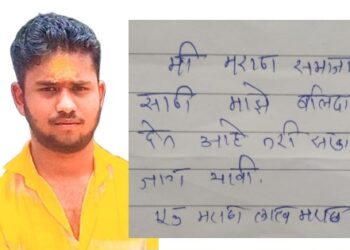 मी मराठा समाजा
साठी माझे बलिदा
देत आहे तरी
जाग यावी.
एक मराठा लाख मराठा